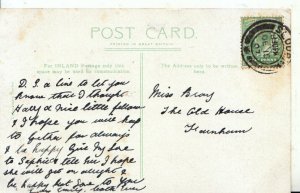 POST CARD.
PRINTED IN GREAT BRITAIN
For INLAND Postage only this
space may be used for communication.
The Address only to be written
here
D. S. a line to let you
know that I thought
Harry a nice little fellow
& I hope you will keep
to gether for always
& be happy Give my love
to Sophie & tell her I hope
she will get on alright &
be happy best love to you
Miss Bray
The Old House